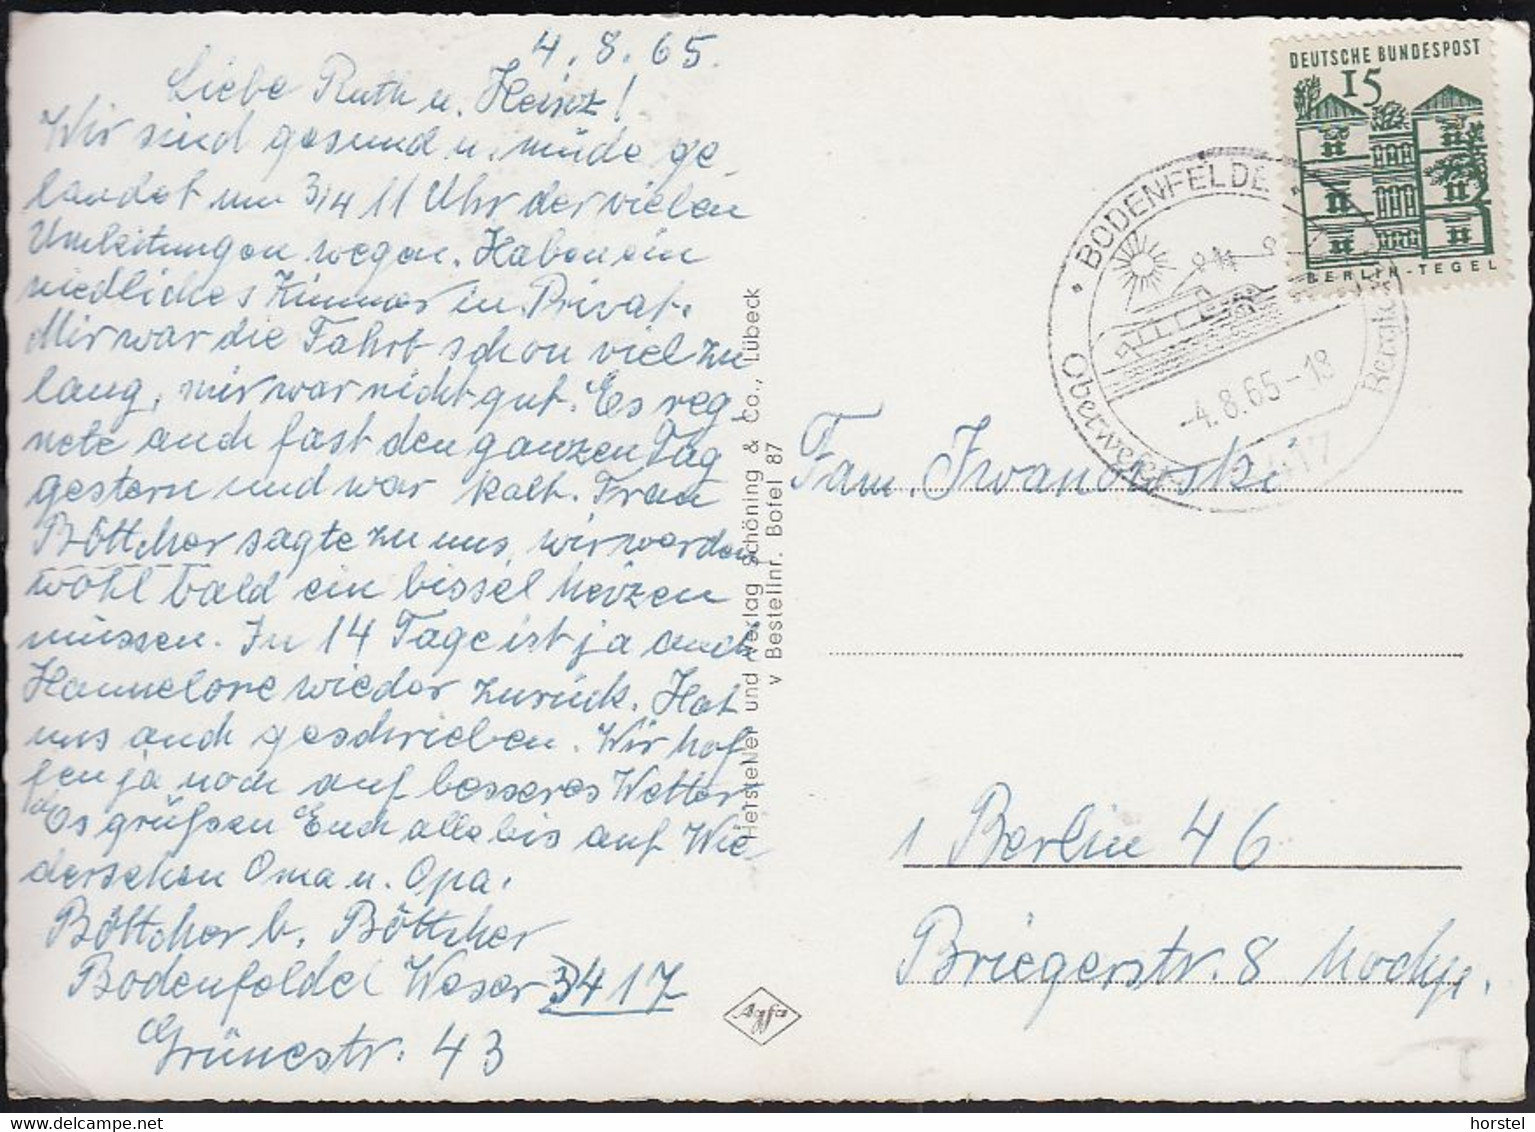 4.8.65.
Liebe Ruth u. Heinz!
Wir sind gesund u. müde ge
landet um 3/4 11 Uhr der vielen
Umleitungen wegen. Haben ein
niedliches Zimmer in Privat.
Mir war die Fahrt schon viel zu
lang, mir war nicht gut. Es reg
nete auch fast den ganzen Tag
gestern und war kalt. Frau
Böttcher sagte zu uns, wir werden
wohl bald ein bissel heizen
müssen. In 14 Tage ist ja auch
Hannelore wieder zurück. Hat
uns auch geschrieben. Wir hof
fen ja noch auf besseres Wetter
Es grüßen Euch alle bis auf Wie
dersehen Oma u. Opa.
Böttcher b. Böttcher
Bodenfelde/ Weser 3417
Grünestr. 43
Hersteller und Verlag Schöning & Co., Lübeck
v Bestellnr. Bofel 87
Agfa
DEUTSCHE BUNDESPOST
15
BERLIN-TEGEL
BODENFELDE
-4.8.65-18
Oberweser
3417
Fam. Iwanowski
1 Berlin 46
Briegerstr. 8 Hochp.
horstel
delcampe.net